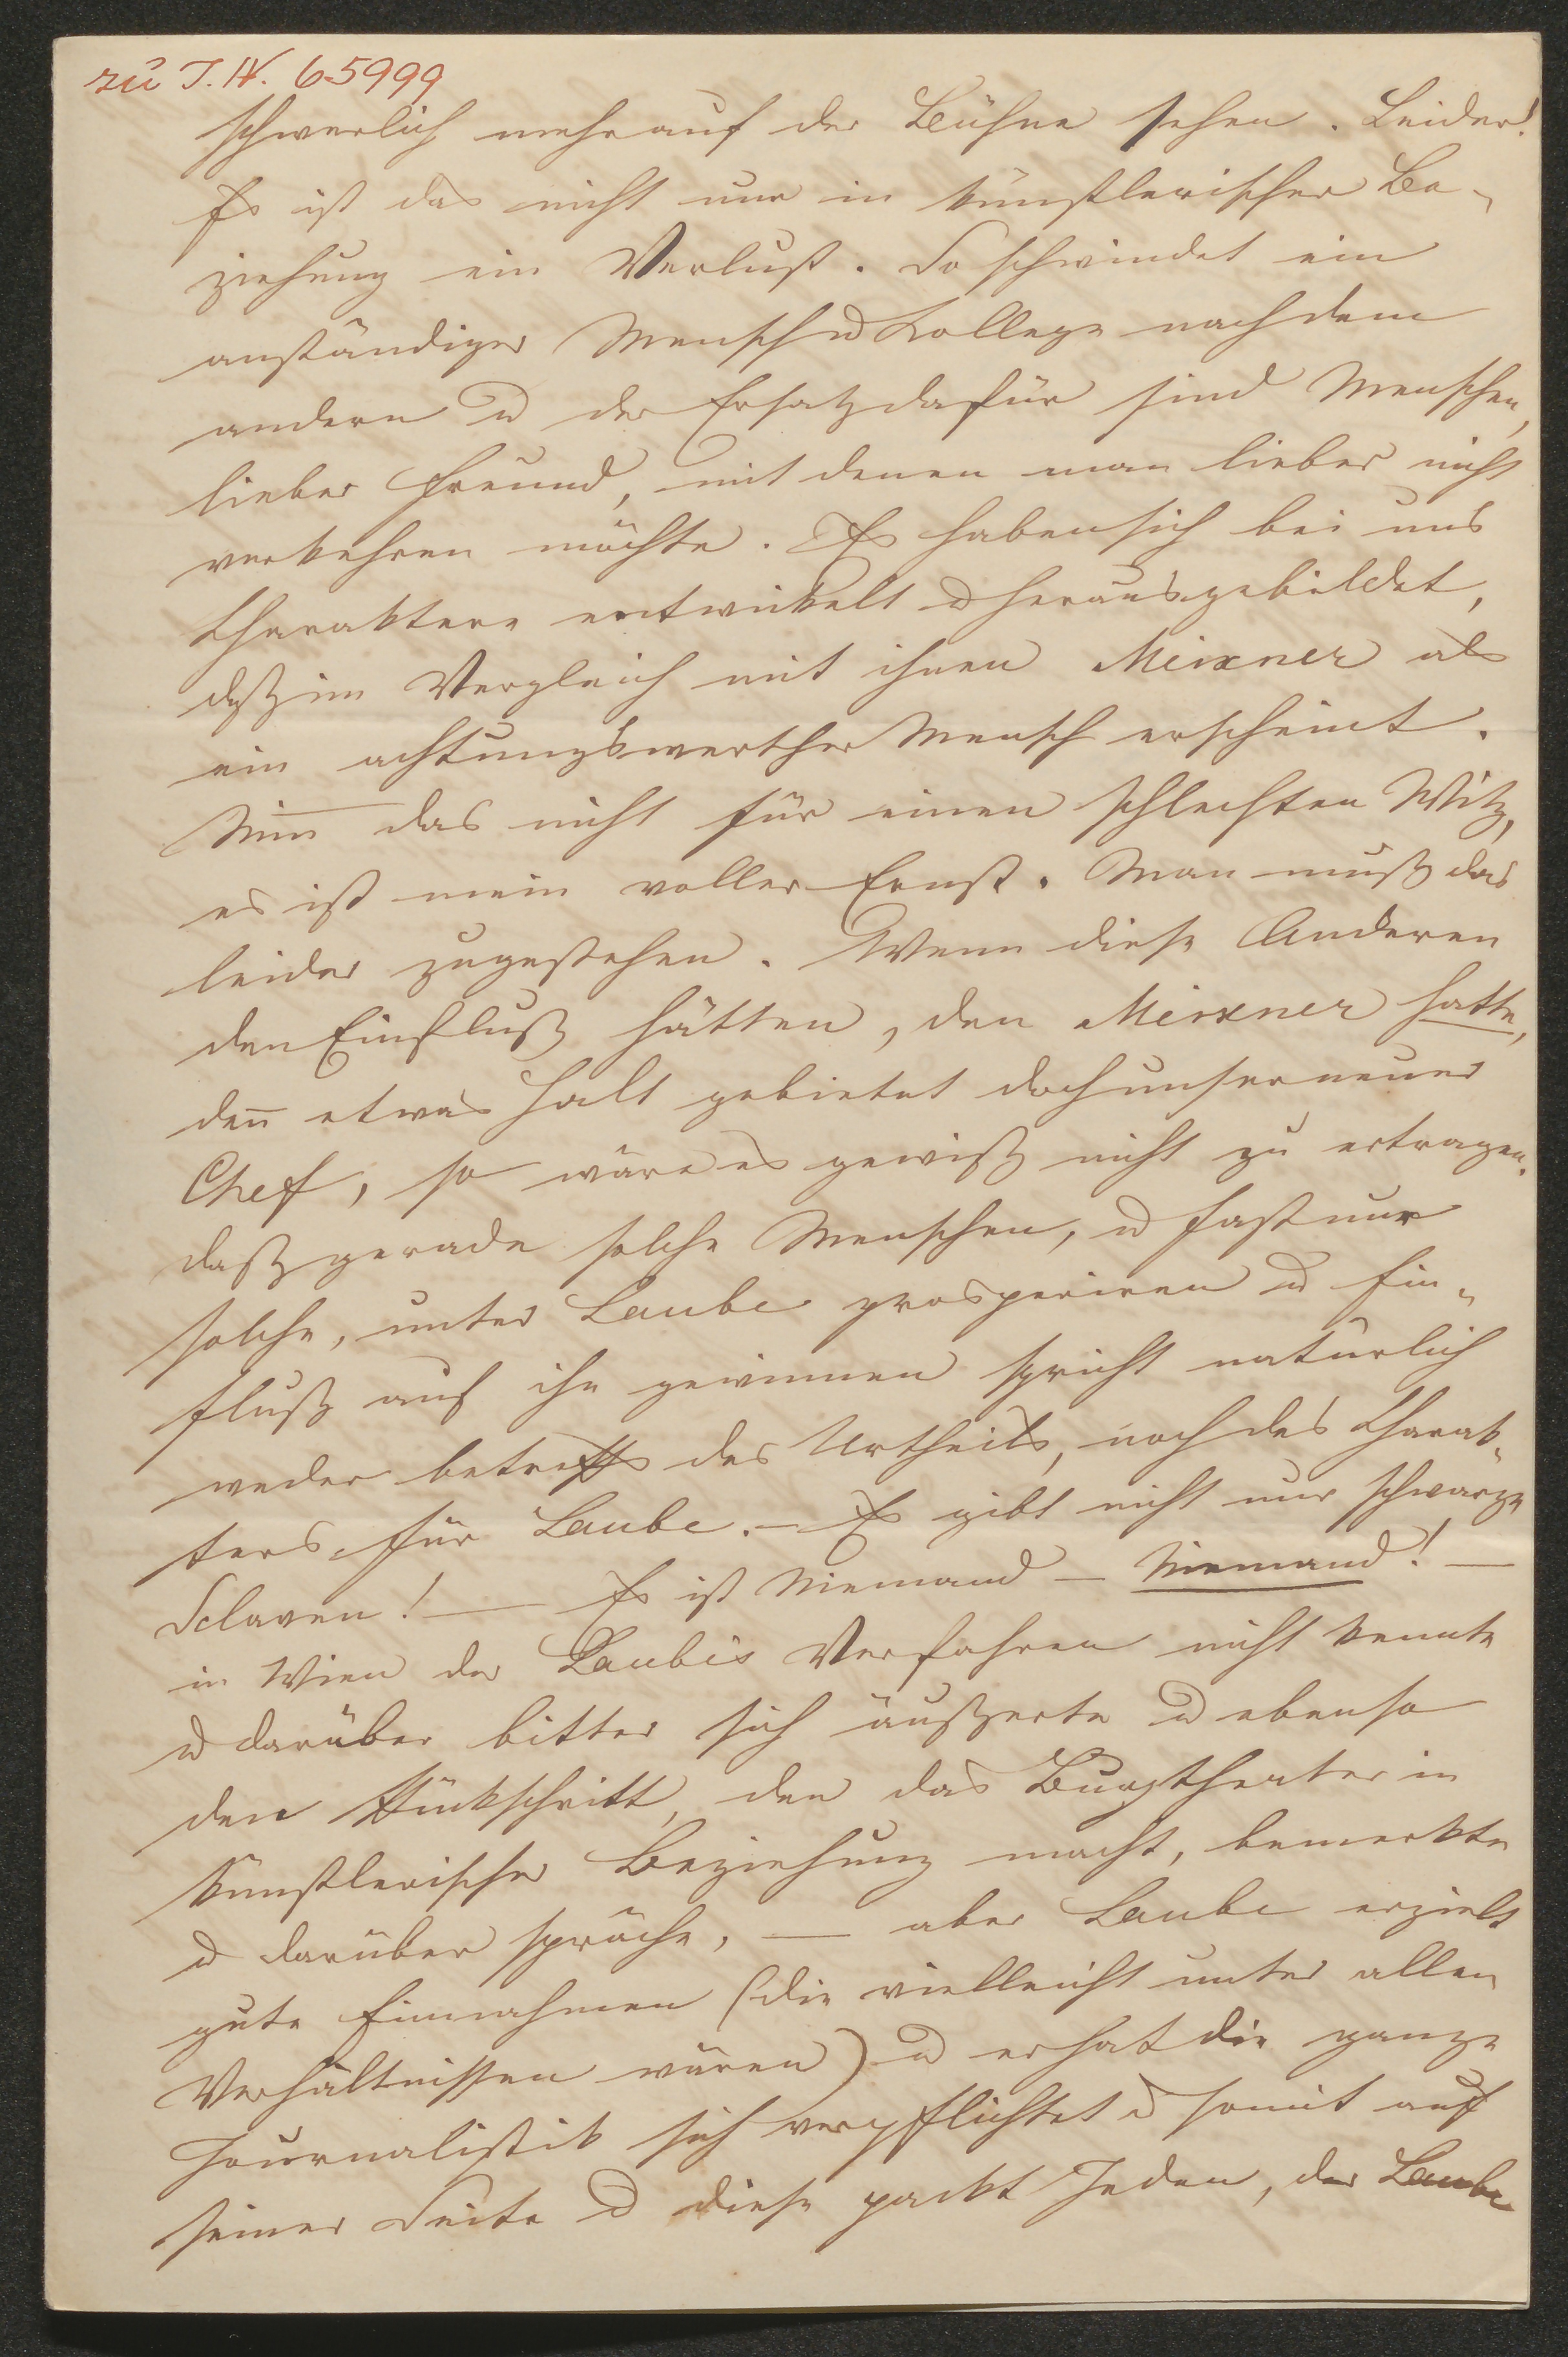 zu I.N. 65999
schwerlich mehr auf der Bühne sehen. Leider!
Es ist das nicht nur in künstlerischer Be-
ziehung ein Verlust. So schwindet ein
anständiger Mensch u College nach dem
andern u der Ersatz dafür sind Menschen,
lieber Freund, mit denen man lieber nicht
verkehren möchte. Es haben sich bei uns
Charaktere entwickelt u herausgebildet,
daß im Vergleich mit ihnen Meixner als
ein achtungswerther Mensch erscheint.
Nim̅ das nicht für einen schlechten Witz,
es ist mein voller Ernst. Man muß das
leider zugestehen. Wenn diese Anderen
den Einfluß hätten, den Meixner hatte,
den̅ etwas Halt gebietet doch unser neuer
Chef, so wäre es gewiß nicht zu ertragen.
daß gerade solche Menschen, u fast nur
solche, unter Laube prosperiren u Ein-
fluß auf ihn gewinnen spricht natürlich
weder betreffs des Urtheils, noch des Charak-
ters für Laube. – Es gibt nicht nur schwarze
Sclaven! — Es ist Niemand – Niemand! —
in Wien der Laube's Verfahren nicht kennte
u darüber bitter sich äußerte u ebenso
den Rückschritt, den das Burgtheater in
künstlerischer Beziehung macht, bemerkte
u darüber spräche, — aber Laube erzielt
gute Einnahmen (die vielleicht unter allen
Verhältnissen wären) u er hat die ganze
Journalistik sich verpflichtet u somit auf
seiner Seite u diese packt Jeden, der Laube